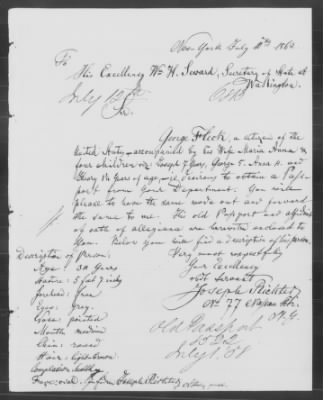 New York July 11th 1862
To
His Excellency Wm H. Seward, Secretary of State at
Washington.
July 12th
Sir,
George Fleck, a citizen of the
United States, accompanied by his Wife Maria Anna &
four children viz: Joseph 7 years, George 5, Anna
years of age, is desirous to obtain a Pass-
port from Your Department. You will
please to have the same made out and forward
the same to me. His old Passport and affidavit
of oath of allegiance are herewith enclosed to
You. Below you will find a description of his person.
Very most respectfully
Your Excellency
obt servant
Joseph
No 77 Nassau Str.
N.Y.
Description of Person:
Age: 38 Years
Stature: 5 feet 7 inch
forehead: free
Eyes: grey
Nose: pointed
Mouth: medium
Chin: round
Hair: light brown
Complexion: healthy
Face: oval.
Old Passport
July 1. 58